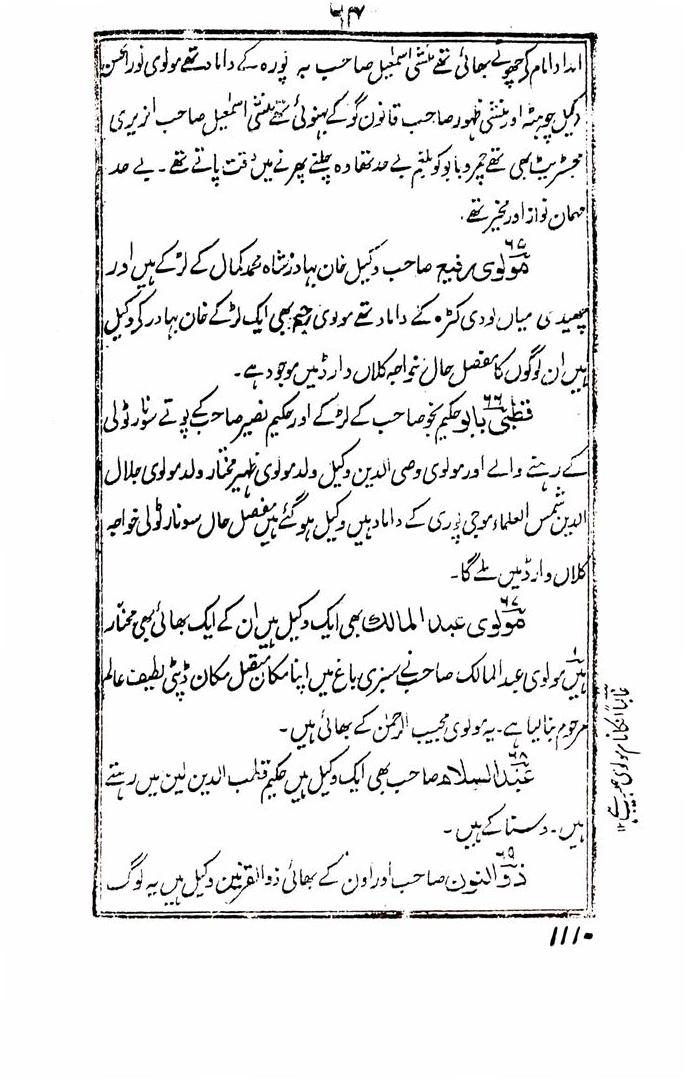 ۶۴
امداد امام کے چھوٹے بھائی تھے منشی اسمٰعیل صاحب بہ پورہ کے داماد تھے مولوی نور الحسن
وکیل چوہٹہ اور منشی ظہور صاحب قانون گو کے بہنوئی تھے منشی اسمٰعیل صاحب انریری
مجسٹریٹ بھی تھے چمرو بابو کو بلغم بے حد تھا وہ چلنے پھرنے میں دقت پاتے تھے ۔ بے حد
مہمان نواز اور مخیر تھے ۔
۶۵
مولوی رفیع صاحب وکیل خان بہادر شاہ محمد کمال کے لڑکے ہیں اور
میاں لودی کٹرہ کے داماد تھے مولوی بھی ایک لڑکے خان بہادر کی وکیل
ہیں ان لوگوں کا مفصل حال خواجہ کلاں وارڈ میں موجود ہے ۔
۶۶
قطبی بابو حکیم نجو صاحب کے لڑکے اور حکیم نصیر صاحب کے پوتے سونار ٹولی
کے رہنے والے اور مولوی وصی الدین وکیل ولد مولوی ظہیر مختار ولد مولوی جلال
الدین شمس العلماء موجی پوری کے داماد ہیں وکیل ہو گئے ہیں مفصل حال سونار ٹولی خواجہ
کلاں وارڈ میں ملے گا ۔
۶۷
مولوی عبد المالک بھی ایک وکیل ہیں ان کے ایک بھائی بھی مختار
ہیں مولوی عبد المالک صاحب نے سبزی باغ میں اپنا مکان متصل مکان ڈپٹی لطیف عالم
مرحوم بنا لیا ہے ۔ یہ مولوی مجیب الرحمٰن کے بھائی ہیں ۔
غالباً انکا نام مولوی حبیب ہے ۱۲
۶۸
عبد السلام صاحب بھی ایک وکیل ہیں حکیم قطب الدین لین میں رہتے
ہیں ۔ دسنا کے ہیں ۔
۶۹
ذو النون صاحب اور اون کے بھائی ذو القرنین وکیل ہیں یہ لوگ
۱۱۱۰